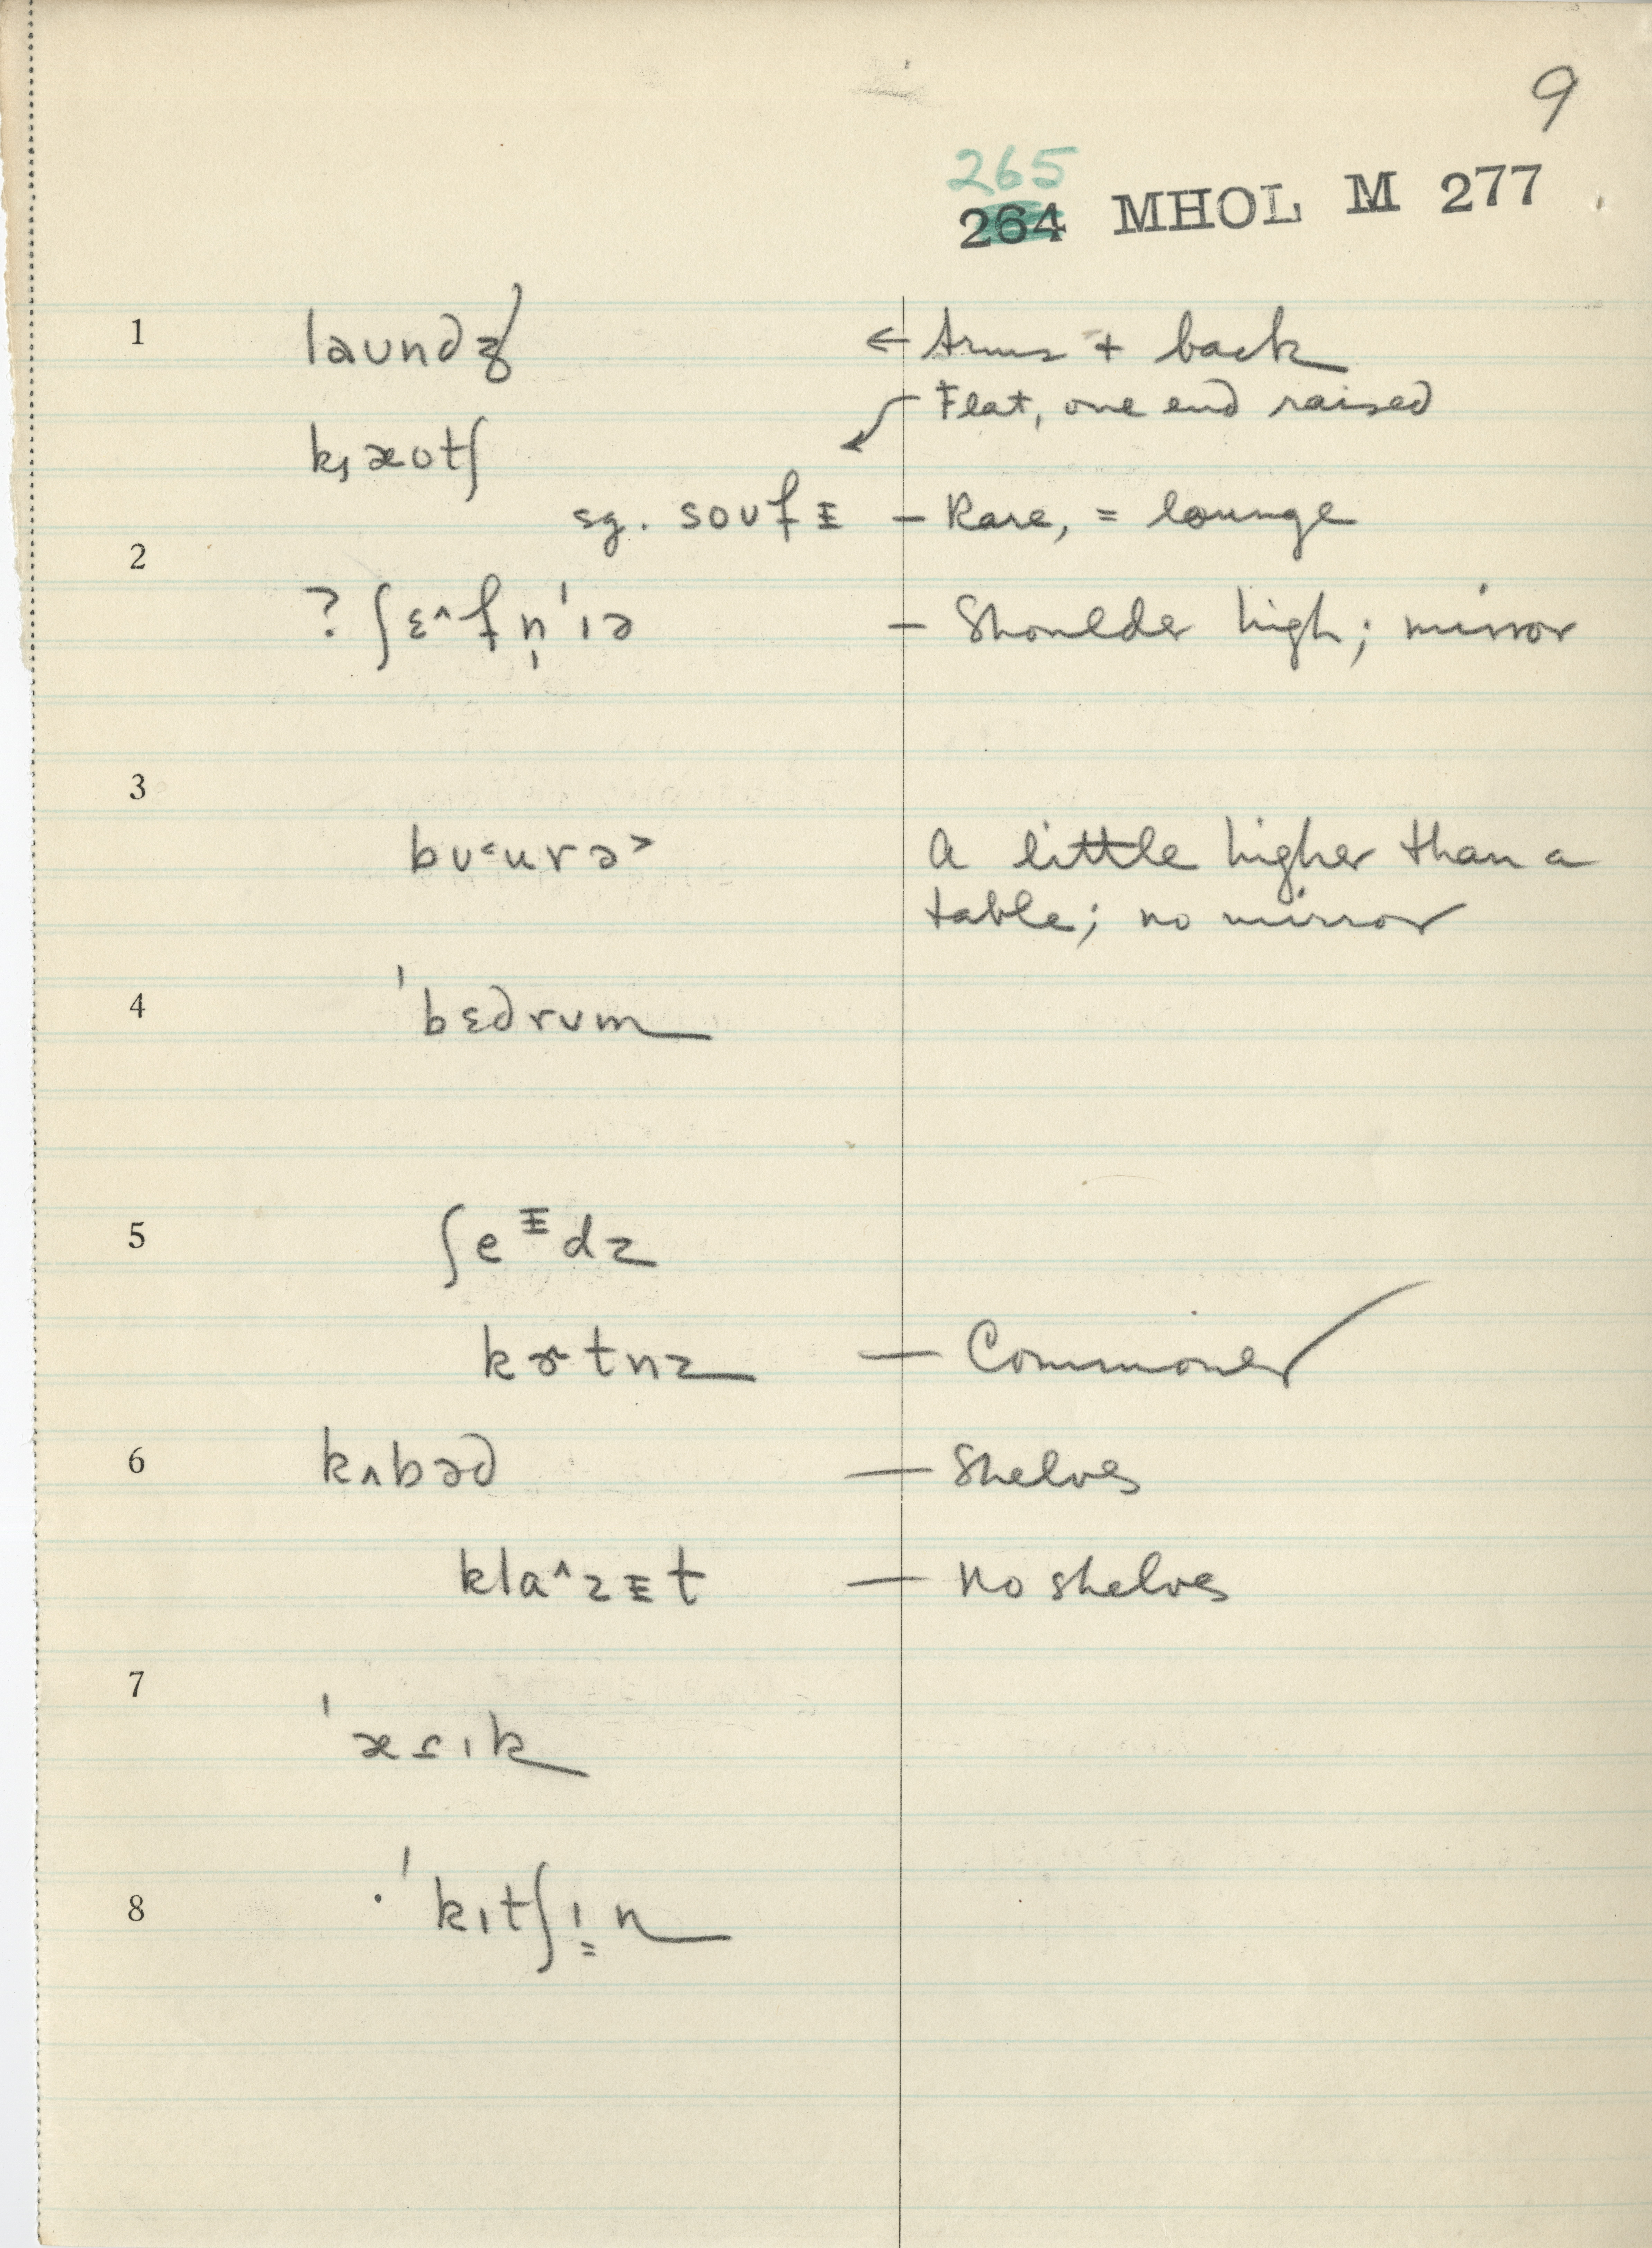 9
265
264 MHOL M 277
1 laundʒ ← Arms + back
Flat, one end raised
kæutʃ
sg. soufɪ – Rare, = lounge
2
? ʃɛ^fn̩'ɪə – Shoulder high; mirror
3
bʊ<urə> A little higher than a
table; no mirror
4 'bɛdrʊm
5 ʃeᵻdz
kɚtnz — Commoner
6 kʌbəd — Shelves
kla^zᵻt — No shelves
7
'æsɪk
8 'kɪtʃɪ̳n